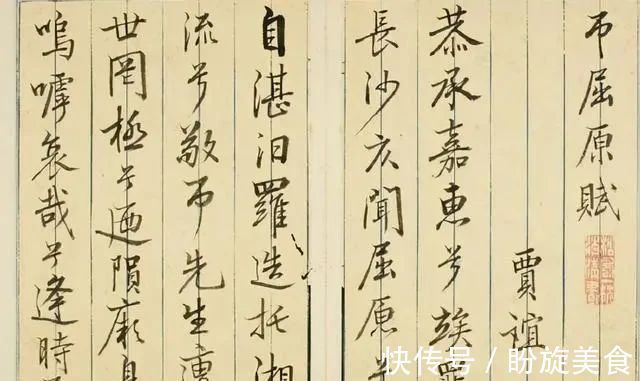 吊屈原賦
賈誼
恭承嘉惠兮竢罪
長沙仄聞屈原兮
自湛汨羅造托湘
流兮敬吊先生遭
世罔極兮迺隕厥身
嗚嘑哀哉兮逢時
快传号 / 盼旋美食